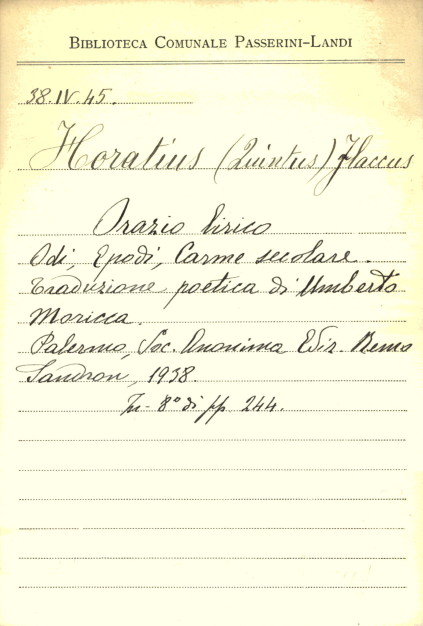 BIBLIOTECA COMUNALE PASSERINI-LANDI
38.IV.45.
Horatius (Quintus) Flaccus
Orazio lirico
Odi, Epodi, Carme secolare.
Traduzione poetica di Umberto
Moricca.
Palermo, Soc. Anonima Ediz. Remo
Sandron, 1938.
In-8° di pp 244.